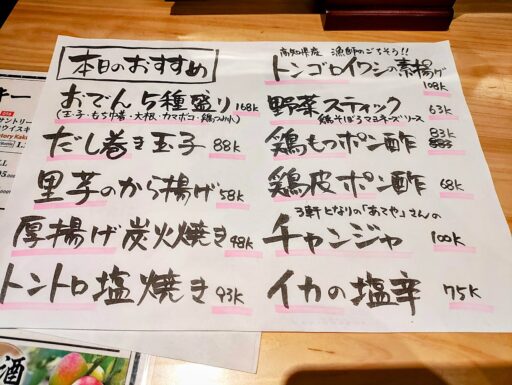 本日のおすすめ
おでん5種盛り 168K
(玉子・もち巾着・大根・カマボコ・鶏つみれ)
だし巻き玉子 88K
里芋のから揚げ 58K
厚揚げ炭火焼き 48K
トントロ塩焼き 93K
高知県産 漁師のごちそう!!
トンゴロイワシの素揚げ
108K
野菜スティック 63K
鶏そぼろマヨネーズソース
鶏もつポン酢 83K
鶏皮ポン酢 68K
3軒となりの「あてや」さんの
チャンジャ 100K
イカの塩辛 75K
キー
サントリー
ウイスキ
酒